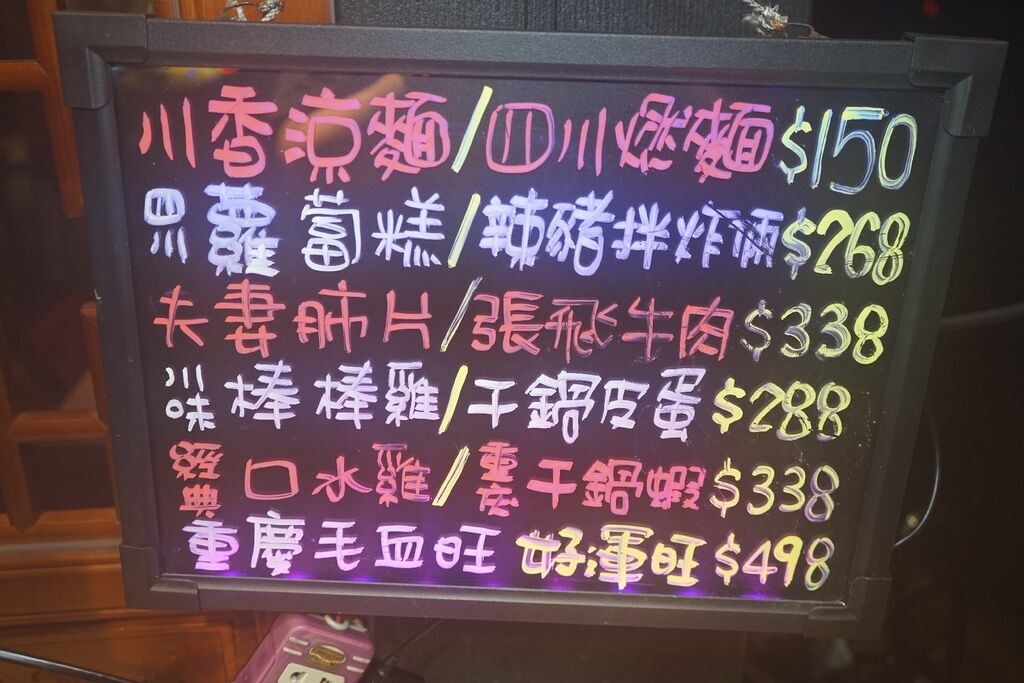 川香涼麵/四川燃麵$150
四川蘿蔔糕/辣豬拌炸兩$268
夫妻肺片/張飛牛肉$338
川味棒棒雞/干鍋皮蛋$288
經典口水雞/重慶干鍋蝦$338
重慶毛血旺 好運旺$498